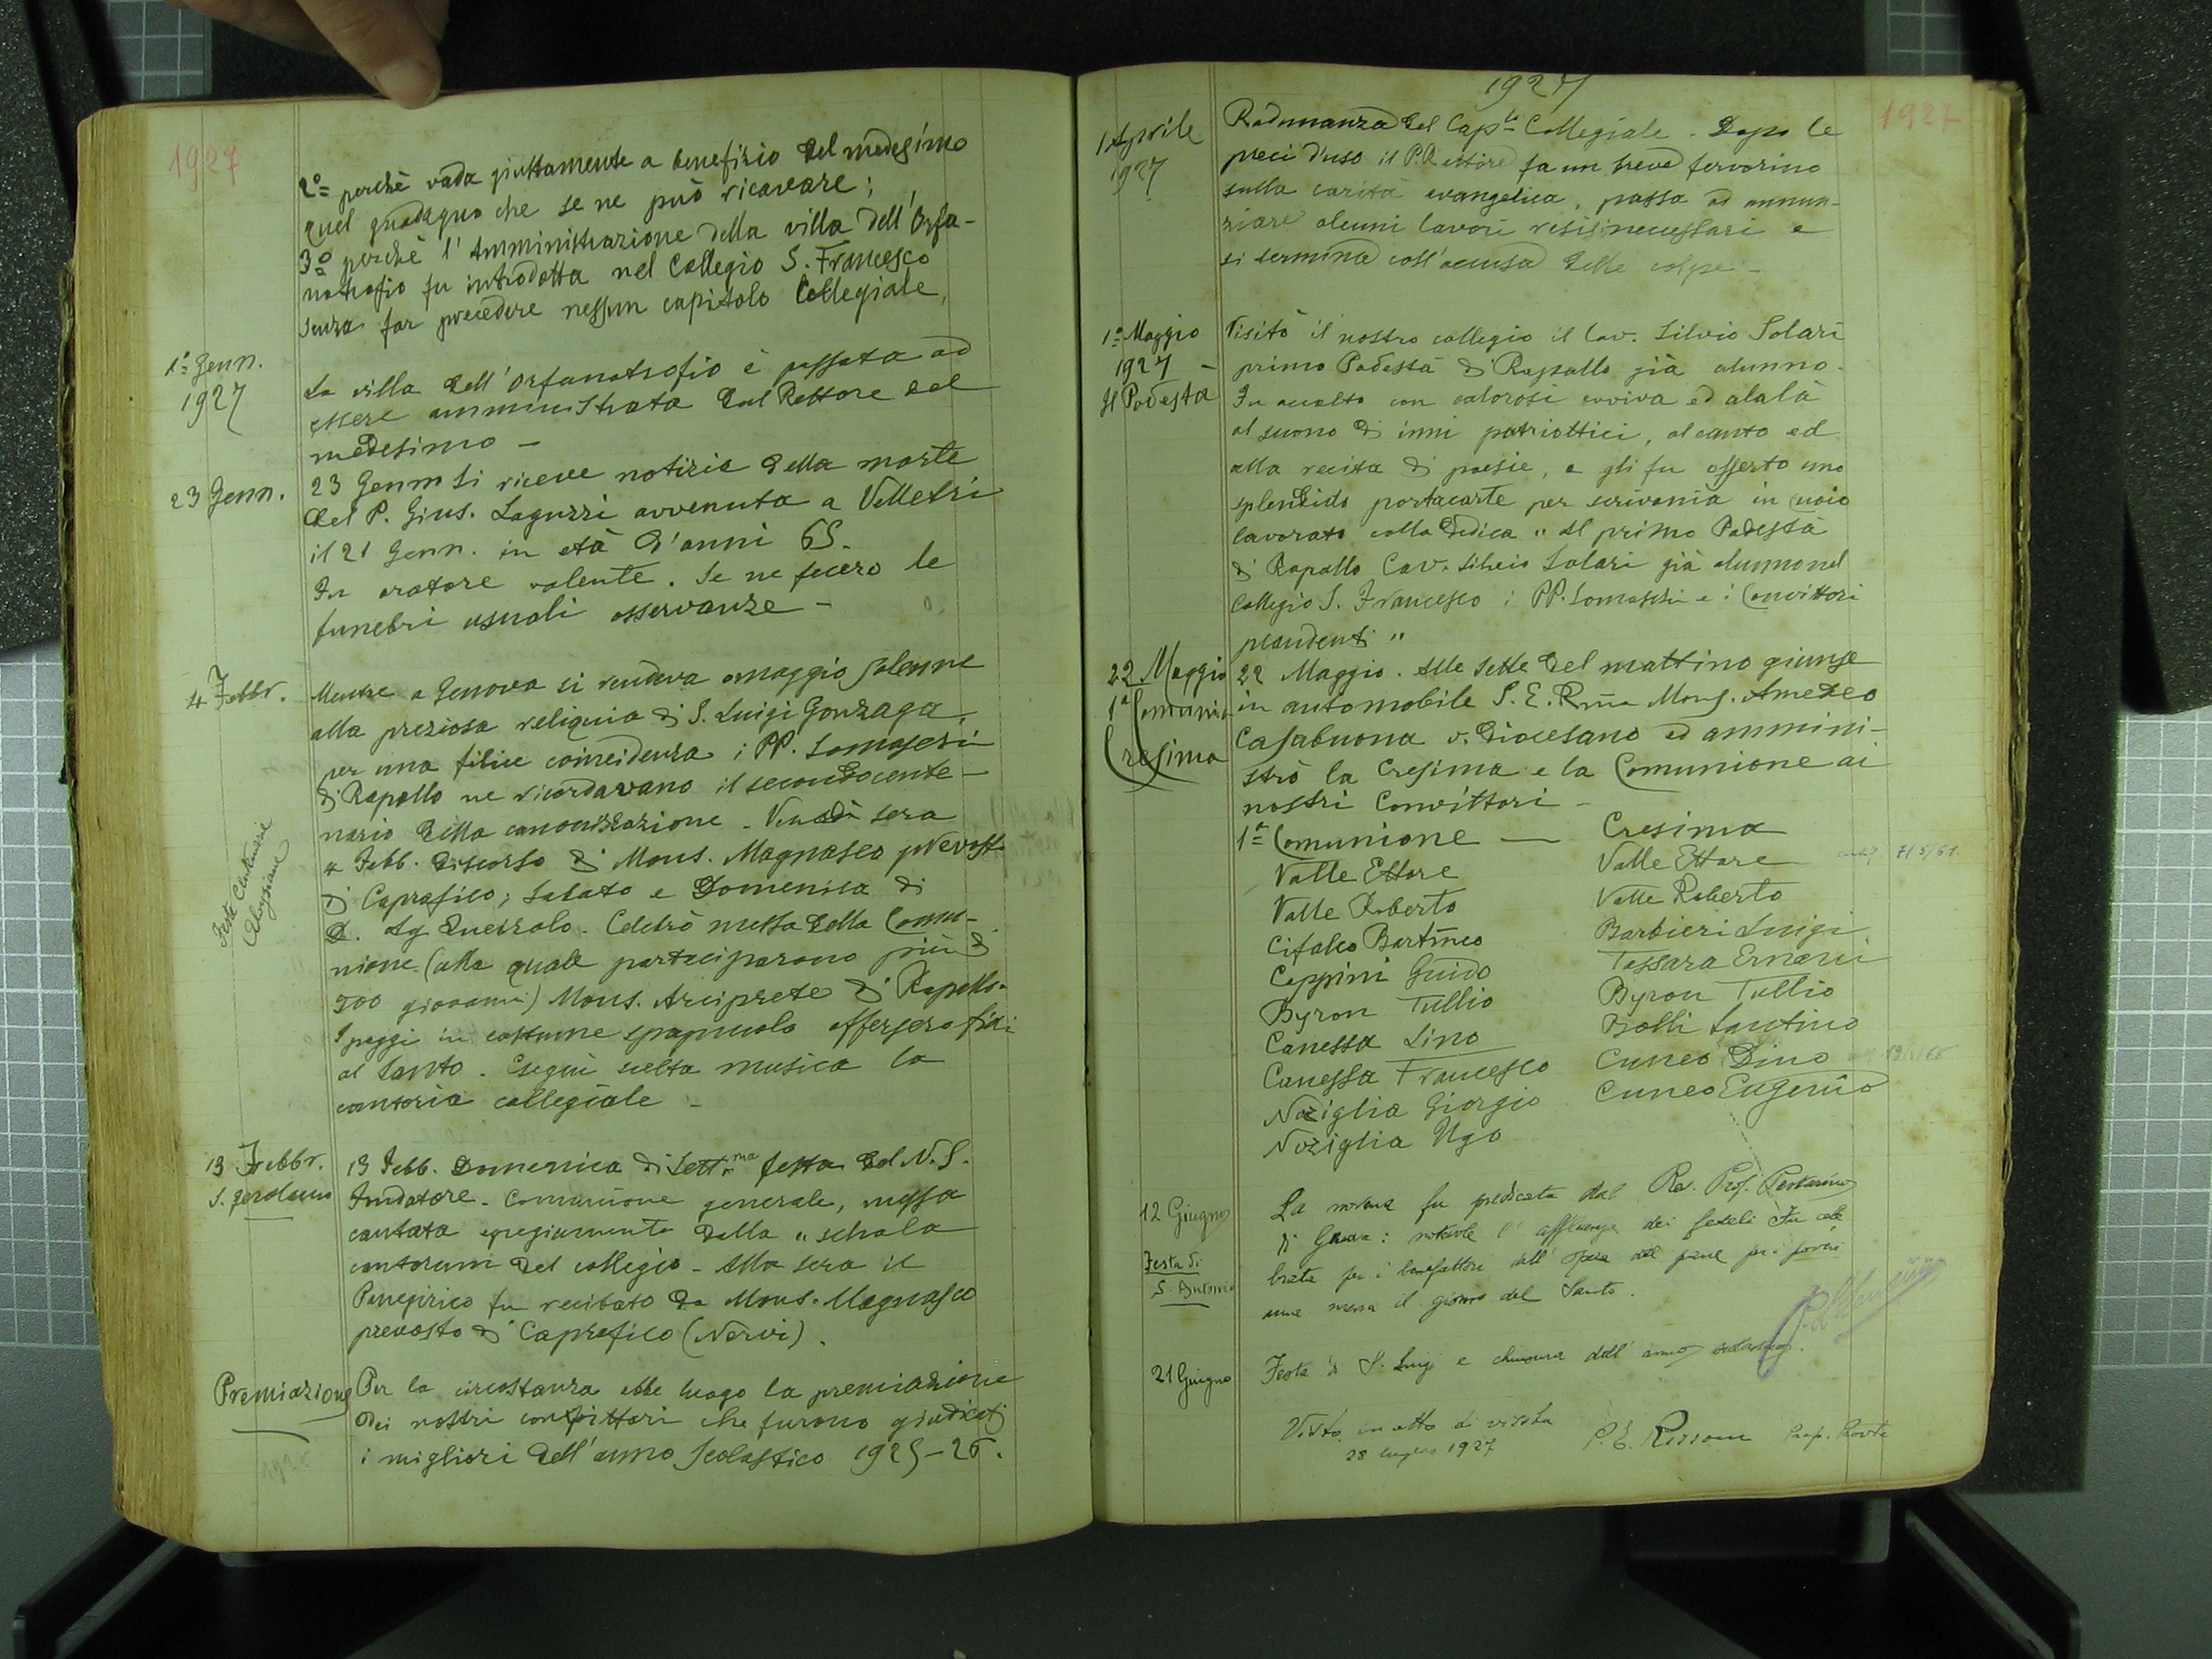 1927
2º perchè vada giustamente a benefizio del medesimo
quel guadagno che se ne può ricavare;
3º perchè l'Amministrazione della villa dell'Orfa-
notrofio fu introdotta nel Collegio S. Francesco
senza far precedere nessun capitolo Collegiale,
1º Genn.
1927
La villa dell'Orfanotrofio è passata ad
essere amministrata dal Rettore del
medesimo –
23 Genn.
23 Genn Si riceve notizia della morte
del P. Gius. Laguzzi avvenuta a Velletri
il 21 Genn. in età d'anni 65.
Fu oratore valente. Se ne fecero le
funebri usuali osservanze –
4 Febbr.
Feste Centenarie
Aloysiane
Mentre a Genova si rendeva omaggio solenne
alla preziosa reliquia di S. Luigi Gonzaga,
per una felice coincidenza i PP. Somaschi
di Rapallo ne ricordavano il secondocente-
nario della canonizzazione. Venerdì sera
4 Febb. discorso di Mons. Magnasco prevosto
di Caprafico; Sabato e Domenica di
D. Queirolo. Celebrò messa della Comu-
nione (alla quale parteciparono più di
giovani) Mons. Arciprete di Rapallo.
I paggi in costume spagnuolo offersero fiori
al Santo. Eseguì scelta musica la
cantoria collegiale –
13 Febbr.
S. Gerolamo
13 Febb. Domenica di Settma festa del N. S.
Fondatore. Comunione generale, messa
cantata egregiamente dalla "schola
cantorum del collegio – Alla sera il
Panegirico fu recitato da Mons. Magnasco
prevosto di Caprafico (Nervi).
Premiazione
Per la circostanza ebbe luogo la premiazione
dei nostri convittori che furono giudicati
i migliori dell'anno Scolastico 1925-26.
1927
1927
1 Aprile
1927
Radunanza del Caple Collegiale. Dopo le
preci d'uso il P. Rettore fa un breve fervorino
sulla carità evangelica, passa ad annun-
ziare alcuni lavori resisi necessari e
si termina coll'accusa delle colpe –
1º Maggio
1927 –
Il Podestà
Visitò il nostro collegio il Cav. Silvio Solari
primo Podestà di Rapallo già alunno.
Fu accolto con calorosi evviva ed alalà
al suono di inni patriottici, al canto ed
alla recita di poesie, e gli fu offerto uno
splendido portacarte per scrivania in cuoio
lavorato colla dedica "Al primo Podestà
di Rapallo Cav. Silvio Solari già alunno nel
Collegio S. Francesco i PP. Somaschi e i Convittori
plaudenti"
22 Maggio
1ª Comunione
Cresima
22 Maggio. Alle sette del mattino giunse
in automobile S. E. Rma Mons. Amedeo
Casabuona v. diocesano ed ammini-
strò la Cresima e la Comunione ai
nostri Convittori –
1ª Comunione — Cresima
Valle Ettore
Valle Roberto
Cifalco Bartmeo
Ceppini Guido
Byron Tullio
Canessa Lino
Canessa Francesco
Noziglia Giorgio
Noziglia Ugo
Valle Ettore
Valle Roberto
Barbieri Luigi
Tassara Ernani
Byron Tullio
Bolli Santino
Cuneo Dino
Cuneo Eugenio
12 Giugno
Festa di
S. Antonio
La novena fu predicata dal Rev. Prof. Pestarino
di Genova: notevole l'affluenza dei fedeli. Fu cele
brata per i benefattori dell'opera del pane per i poveri
una messa il giorno del Santo.
21 Giugno
Festa di S. Luigi e chiusura dell'anno scolastico.
Visto in atto di visita
28 luglio 1927
P. E. Rissone Prep. Prov.le